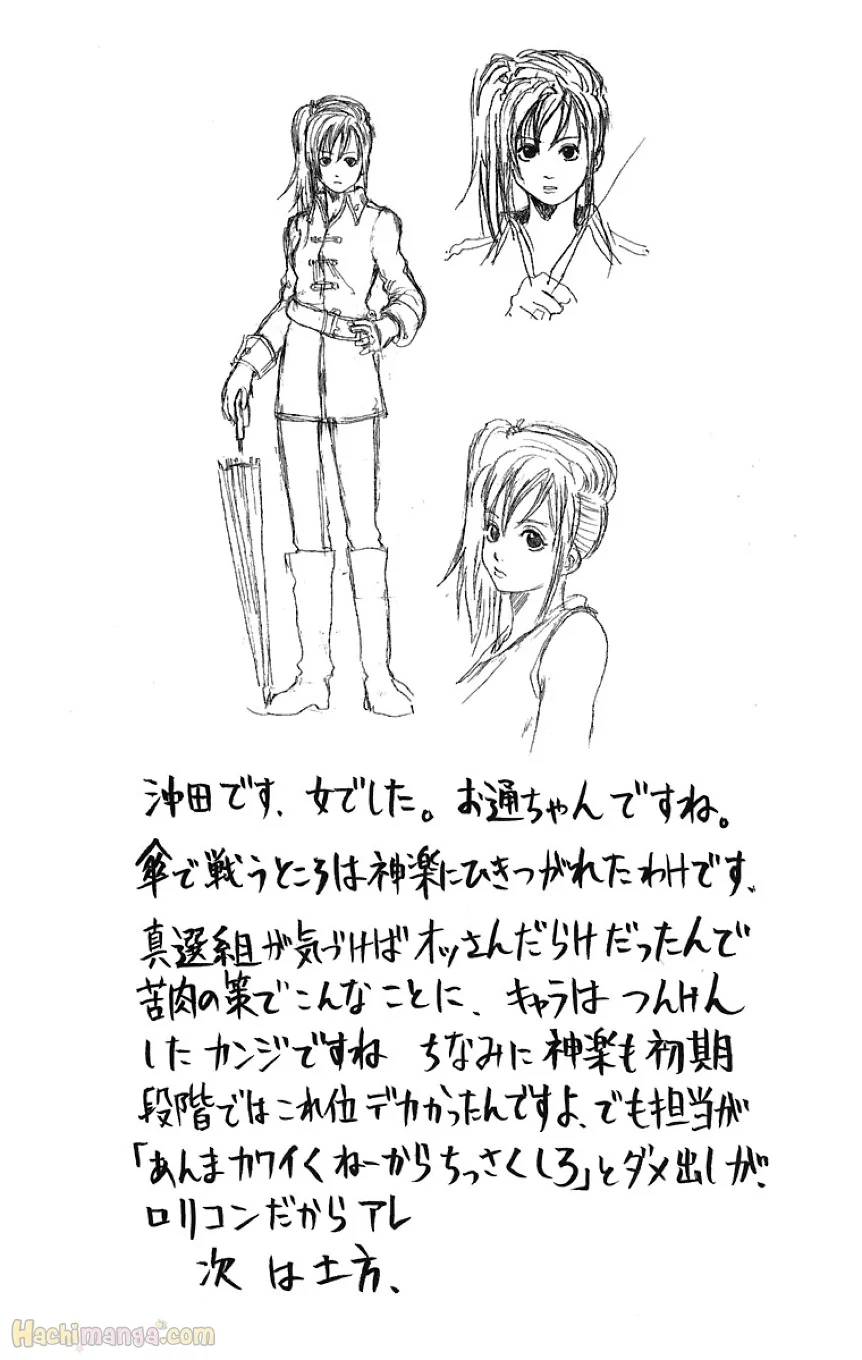 沖田です、女でした。お通ちゃんですね。
傘で戦うところは神楽にひきつがれたわけです。
真選組が気づけばオッさんだらけだったんで
苦肉の策でこんなことに、キャラはつんけん
したカンジですね ちなみに神楽も初期
段階ではこれ位デカかったんですよ、でも担当が
「あんまカワイくねーからちっさくしろ」とダメ出しが、
ロリコンだからアレ
次は土方、
Hachimanga.com